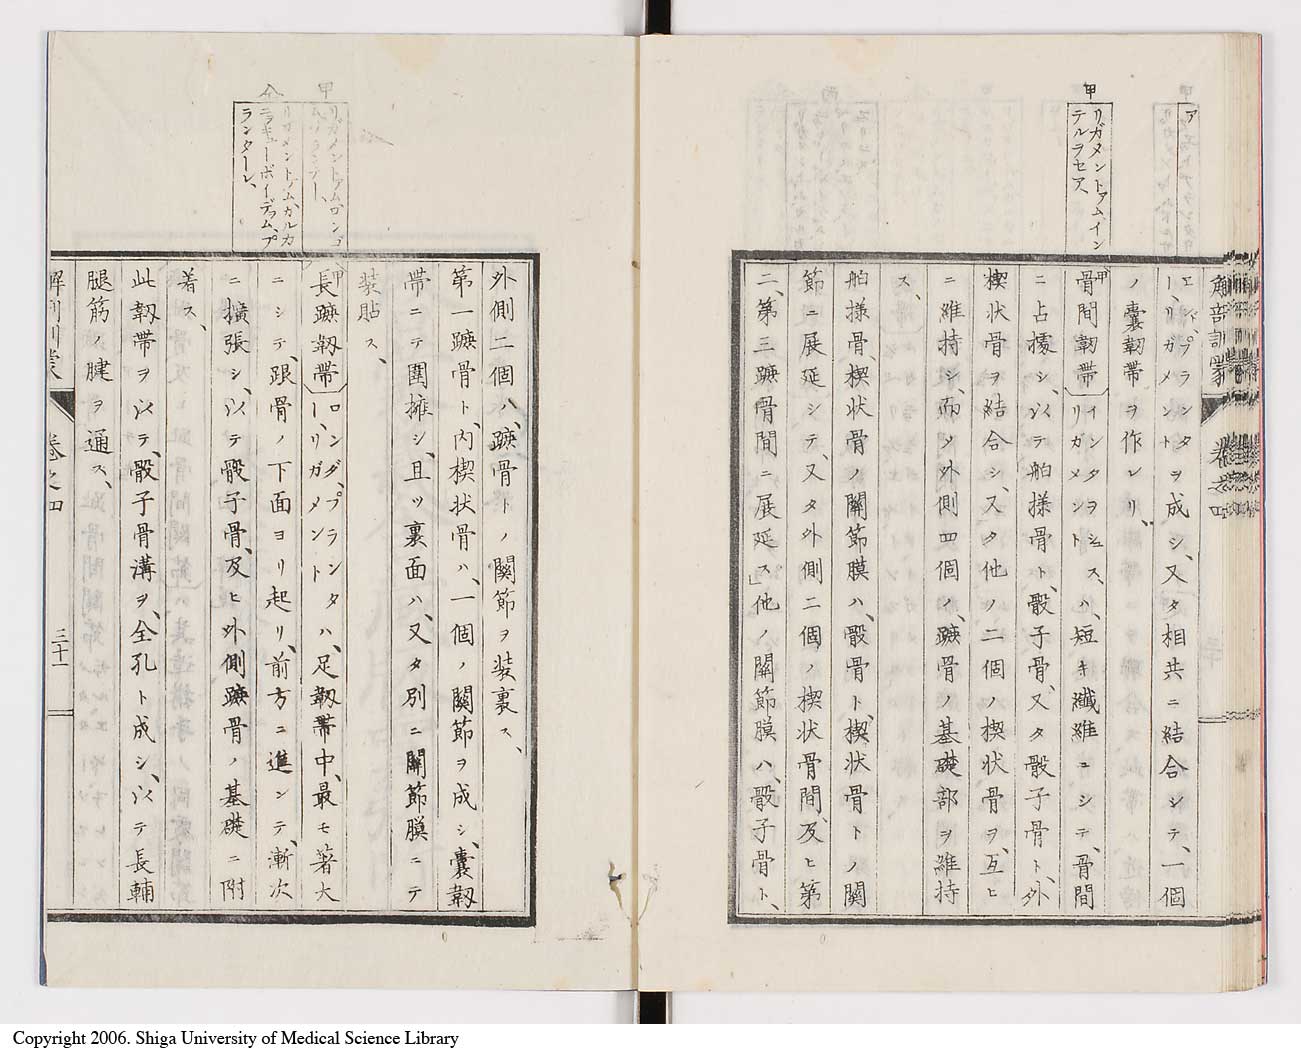 甲
ア
甲
リガメントアム、イン
テルラセア、
エド、プランタヲ成シ、又タ相共ニ結合シテ、一個
ー、リガメント
ノ嚢韌帯ヲ作レリ、
甲
骨間韌帯
インタヲシュス、
リガメントハ、短キ纎維ニシテ、骨間
ニ占據シ、以テ舶様骨ト、骰子骨、又タ骰子骨ト、外
楔状骨ヲ結合シ、又タ他ノ二個ノ楔状骨ヲ、互ヒ
ニ維持シ、而メ外側四個ノ、蹠骨ノ基礎部ヲ維持
ス、
舶様骨、楔状骨ノ關節膜ハ、骰骨ト、楔状骨トノ關
節ニ展延シテ、又タ外側二個ノ楔状骨間、及ヒ第
二、第三蹠骨間ニ展延ス」他ノ關節膜ハ、骰子骨ト、
解剖訓蒙
卷之四
甲
リガメントアムロンゴ
ム、プランテー、
仝
リガメントアム、カルカ
ニヲキューボイデアム、プ
ランターレ、
外側二個ハ、蹠骨トノ關節ヲ装裏ス、
第一蹠骨ト、内楔状骨ハ、一個ノ關節ヲ成シ、嚢韌
帯ニテ圍擁シ、且ツ裏面ハ、又タ別ニ關節膜ニテ
装貼ス、
甲
長蹠韌帯
ロング、プランタ
ー、リガメント
ハ、足韌帯中、最モ著大
ニシテ、跟骨ノ下面ヨリ起リ、前方ニ進ンテ、漸次
ニ擴張シ、以テ骰子骨、及ヒ外側蹠骨ノ基礎ニ附
着ス、
此韌帯ヲ以テ、骰子骨溝ヲ、全孔ト成シ、以テ長輔
腿筋ノ腱ヲ通ス、
解剖訓蒙
卷之四
三十一
Copyright 2006. Shiga University of Medical Science Library